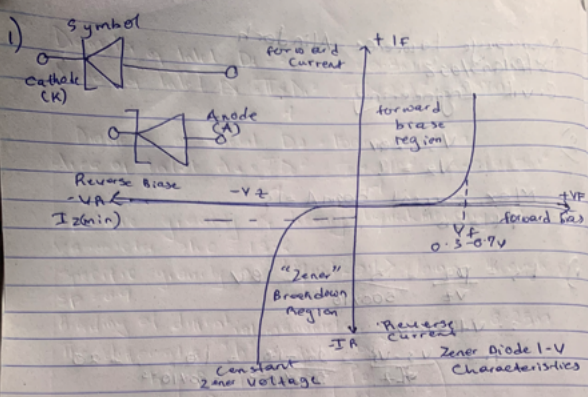 1)
Symbol
Cathode
(K)
Anode
(A)
+ IF
forward
Current
forward
biase
region
Reverse Biase
-VR
-Vz
Iz(min)
+VF
forward bias
Vf
0.3-0.7v
"Zener"
Breakdown
Region
-IR
Reverse
Current
Constant
Zener Voltage
Zener Diode I-V
Characteristics